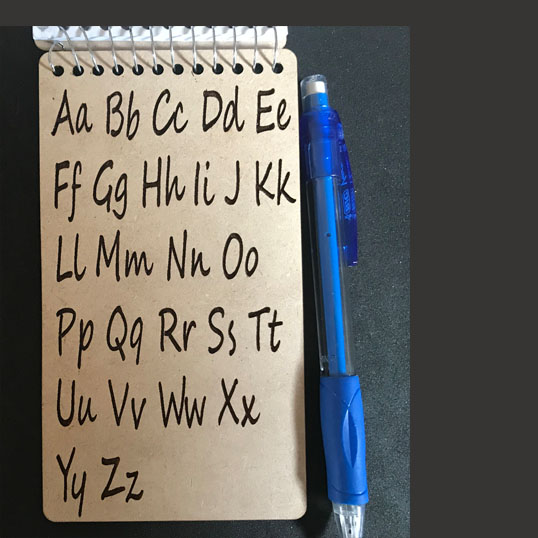 Aa Bb Cc Dd Ee
Ff Gg Hh Ii J Kk
Ll Mm Nn Oo
Pp Qq Rr Ss Tt
Uu Vv Ww Xx
Yy Zz